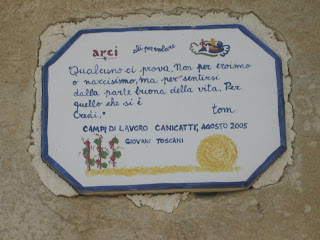 arci ali per volare
Qualcuno ci prova. Non per eroismo
o narcisismo, ma per sentirsi
dalla parte buona della vita. Per
quello che si è
Credi."
tom
CAMPI DI LAVORO CANICATTI', AGOSTO 2005
GIOVANI TOSCANI